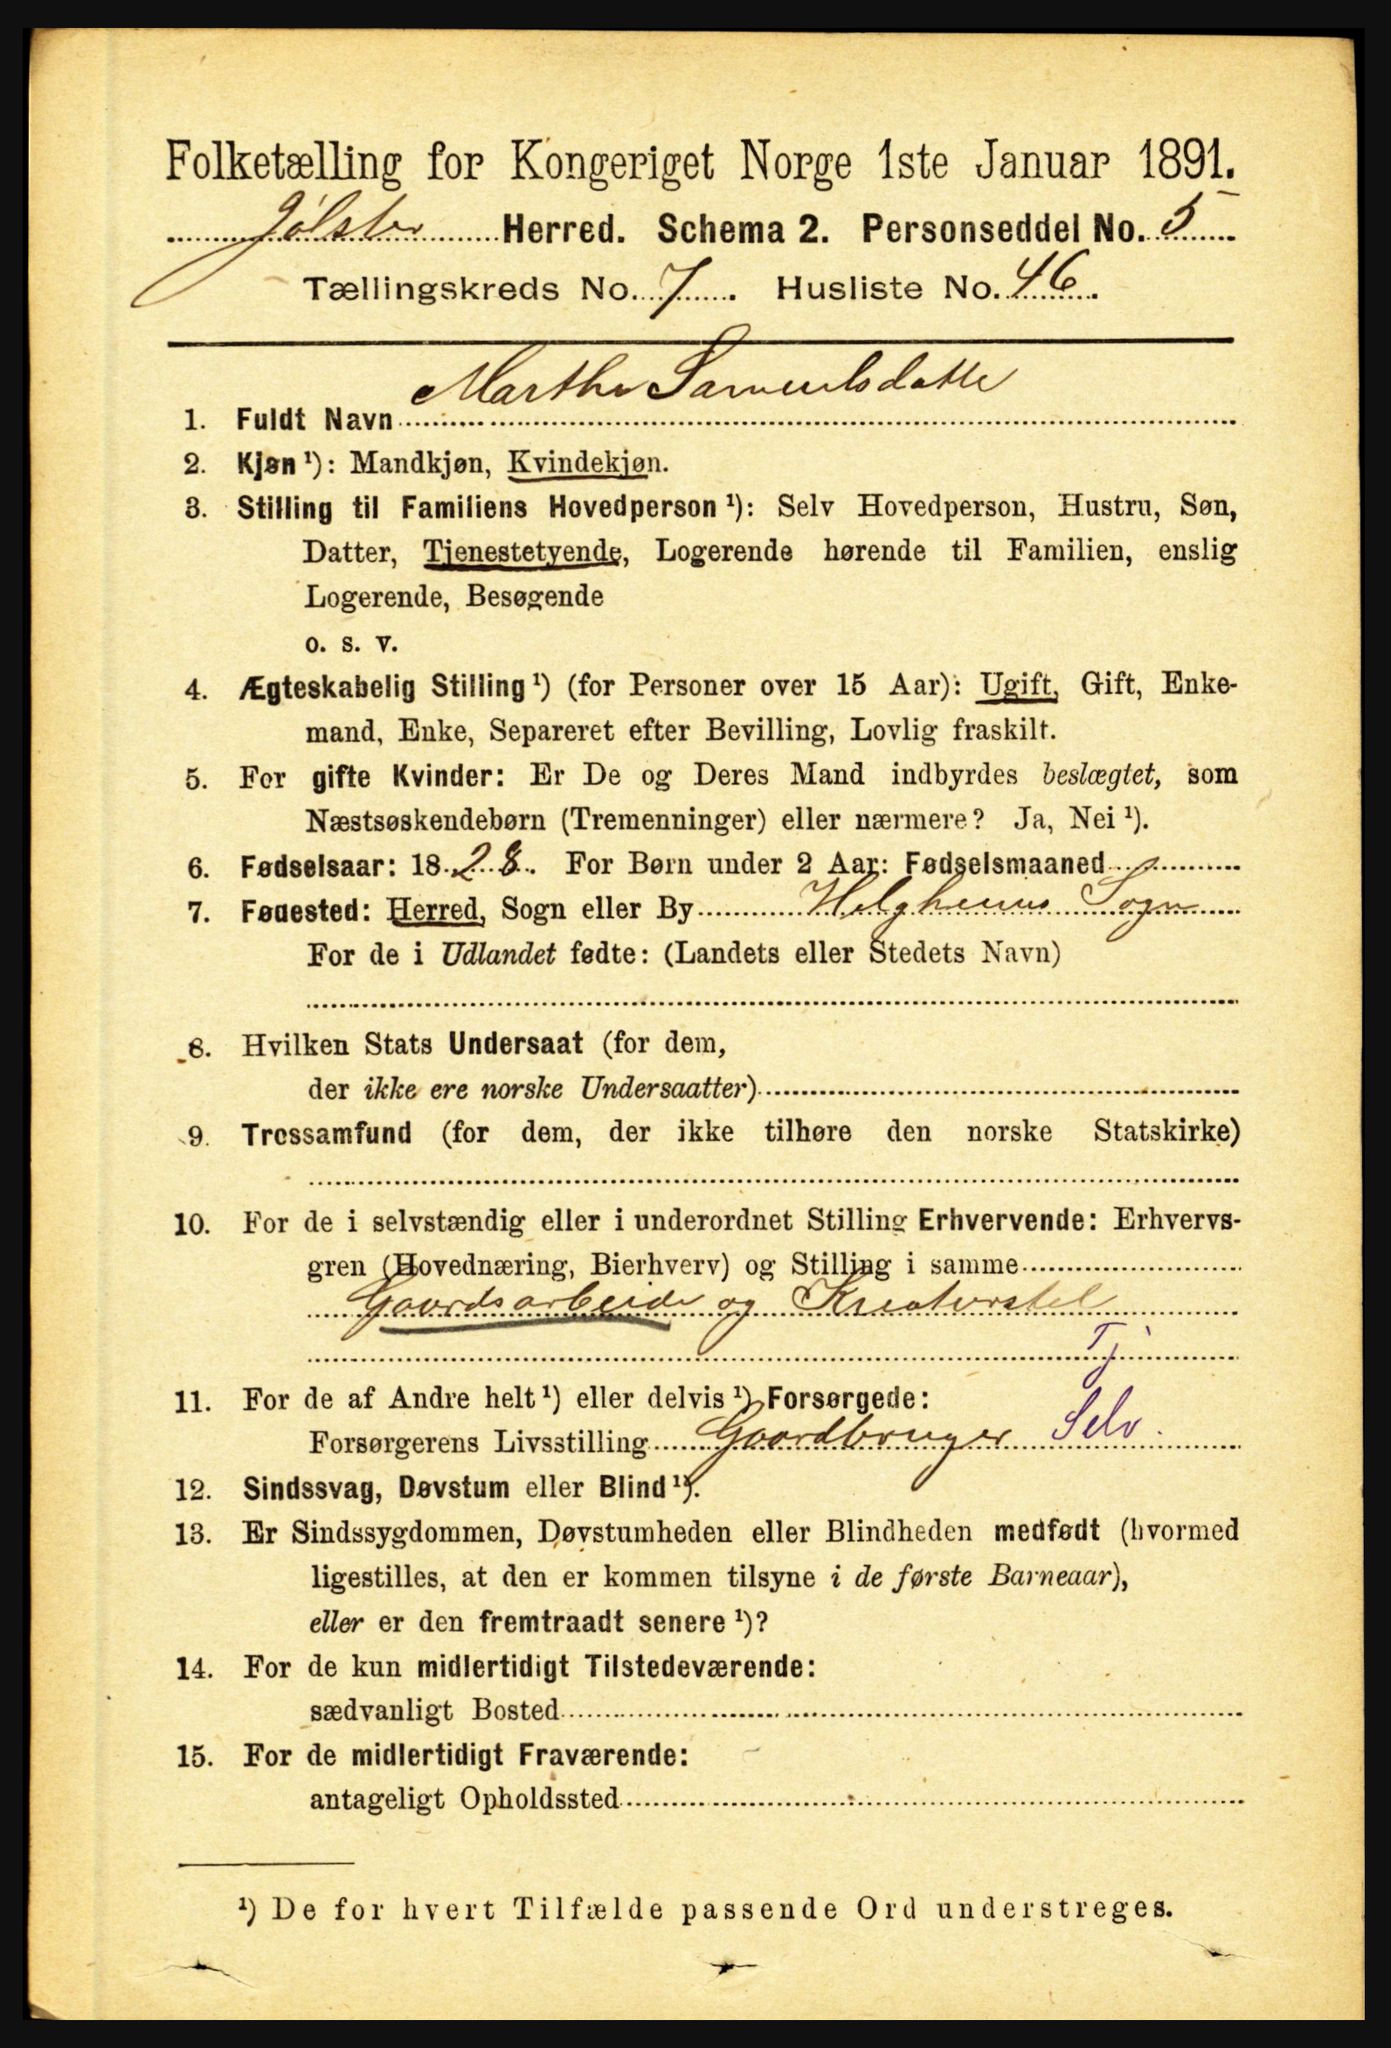 Folketælling for Kongeriget Norge 1ste Januar 1891.
Jølster Herred. Schema 2. Personseddel No. 5
Tællingskreds No. 7. Husliste No. 46.
1. Fuldt Navn Marthe Samuelsdatte
2. Kjøn ¹): Mandkjøn, Kvindekjøn.
3. Stilling til Familiens Hovedperson ¹): Selv Hovedperson, Hustru, Søn,
Datter, Tjenestetyende, Logerende hørende til Familien, enslig
Logerende, Besøgende
o. s. v.
4. Ægteskabelig Stilling ¹) (for Personer over 15 Aar): Ugift, Gift, Enke-
mand, Enke, Separeret efter Bevilling, Lovlig fraskilt.
5. For gifte Kvinder: Er De og Deres Mand indbyrdes beslægtet, som
Næstsøskendebørn (Tremenninger) eller nærmere? Ja, Nei ¹).
6. Fødselsaar: 1828. For Børn under 2 Aar: Fødselsmaaned
7. Fødested: Herred, Sogn eller By Helghems Sogn
For de i Udlandet fødte: (Landets eller Stedets Navn)
8. Hvilken Stats Undersaat (for dem,
der ikke ere norske Undersaatter)
9. Trossamfund (for dem, der ikke tilhøre den norske Statskirke)
10. For de i selvstændig eller i underordnet Stilling Erhvervende: Erhvervs-
gren (Hovednæring, Bierhverv) og Stilling i samme
Gaardsarbeide og Kreaturstel
Tj
11. For de af Andre helt ¹) eller delvis ¹) Forsørgede:
Forsørgerens Livsstilling Gaardbruger Selv.
12. Sindssvag, Døvstum eller Blind ¹).
13. Er Sindssygdommen, Døvstumheden eller Blindheden medfødt (hvormed
ligestilles, at den er kommen tilsyne i de første Barneaar),
eller er den fremtraadt senere ¹)?
14. For de kun midlertidigt Tilstedeværende:
sædvanligt Bosted
15. For de midlertidigt Fraværende:
antageligt Opholdssted
¹) De for hvert Tilfælde passende Ord understreges.